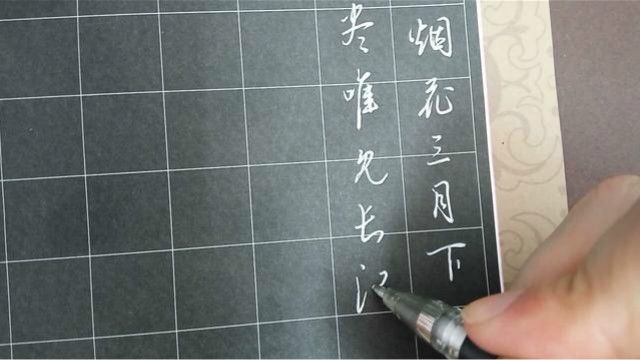 烟花三月下
尽唯见长江